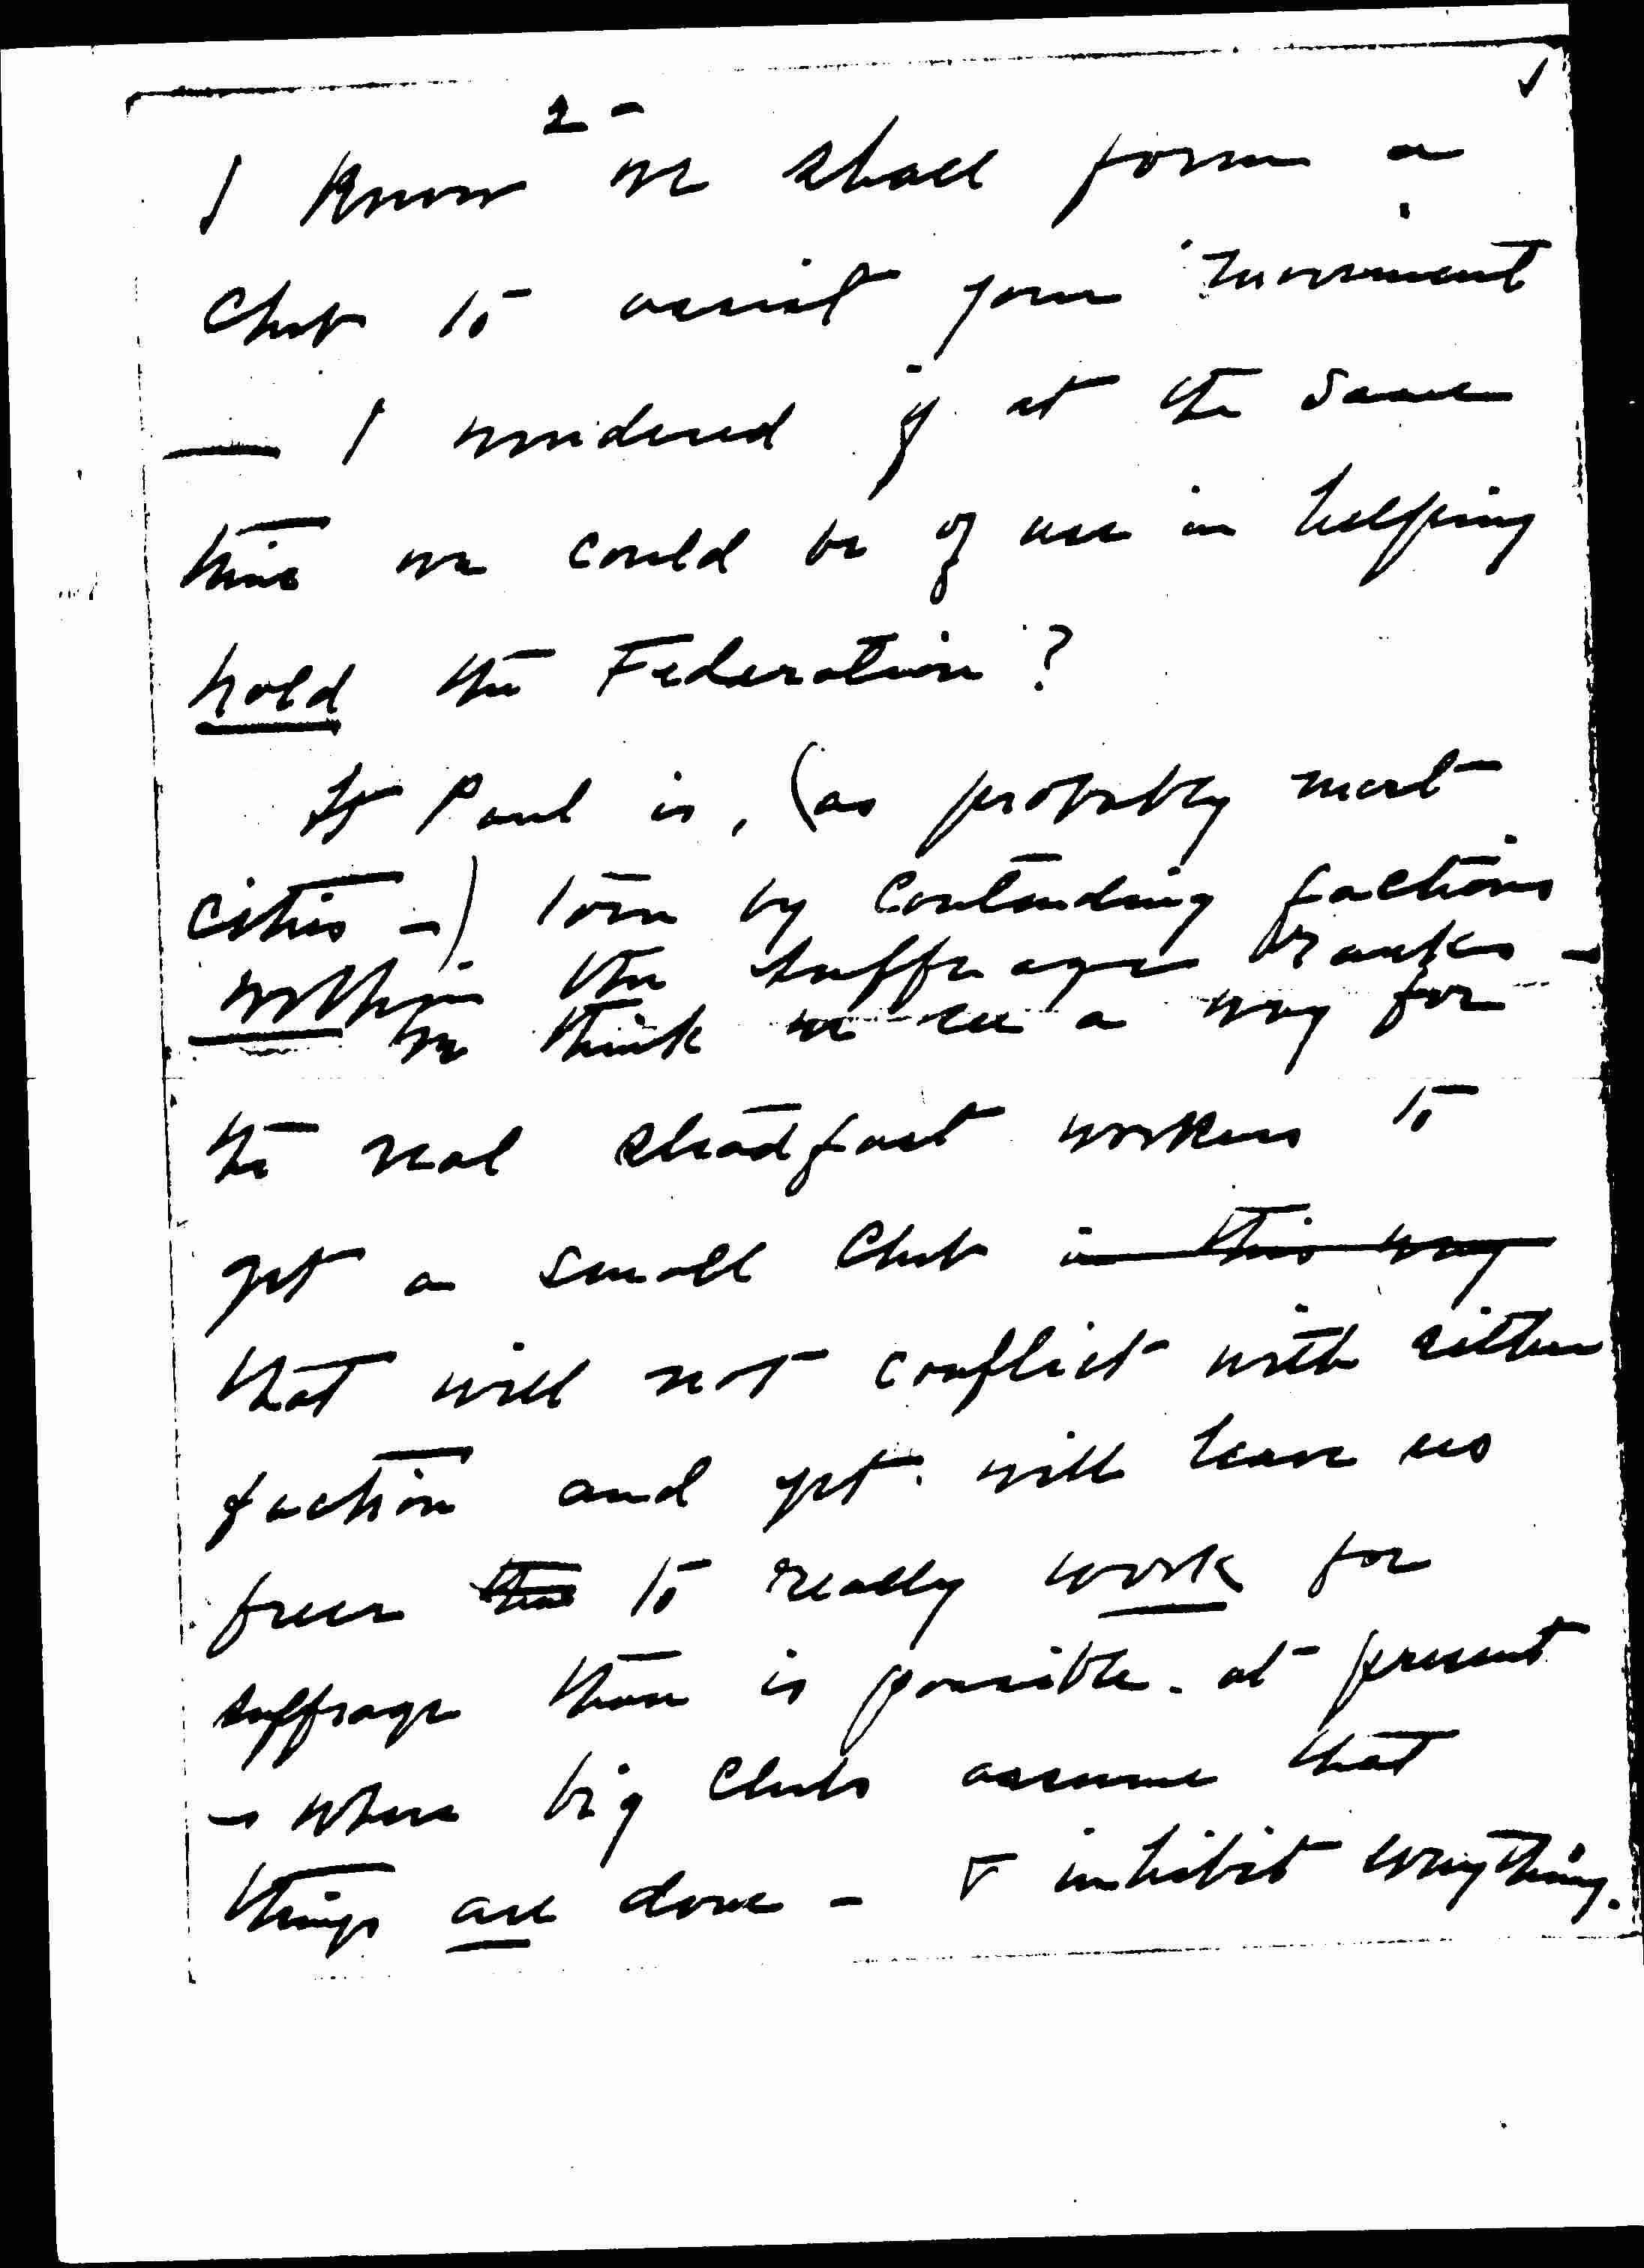 2 -
I know we shall form a
Club to assist your movement
— I wondered if at the same
time we could be of use in helping
hold the Federation?
St Paul is, (as probably most
cities -) torn by Contending factions
within the suffrage ranks -
We think we see a way for
the real steadfast workers to
get a small Club in this way
that will not conflict with either
faction and yet will leave us
freer to really work for
suffrage than is possible - at present
- where big Clubs assume that
things are done - & inhibit everything.